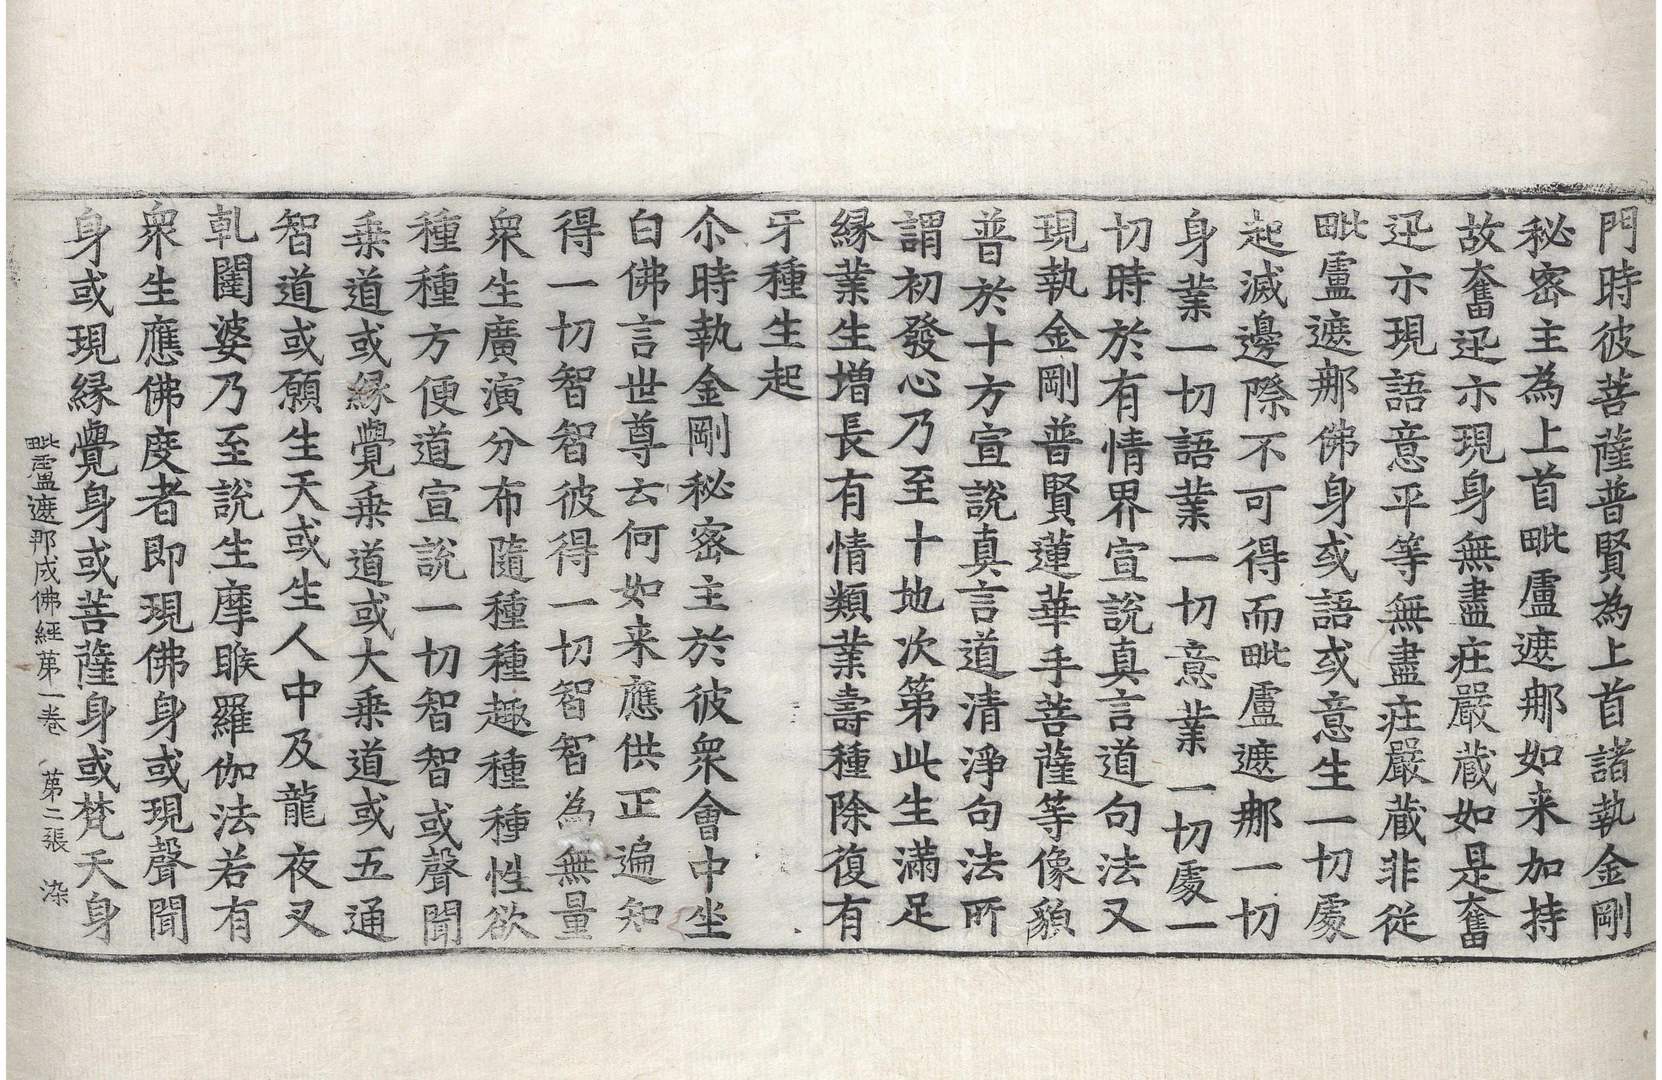 門時彼菩薩普賢為上首諸執金剛
秘密主為上首毗盧遮那如来加持
故奮迅示現身無盡莊嚴蔵如是奮
迅示現語意平等無盡莊嚴蔵非従
毗盧遮那佛身或語或意生一切處
起滅邊際不可得而毗盧遮那一切
身業一切語業一切意業一切處一
切時於有情界宣說真言道句法又
現執金剛普賢蓮華手菩薩等像貌
普於十方宣說真言道清淨句法所
謂初發心乃至十地次第此生滿足
緣業生增長有情類業壽種除復有
牙種生起
尒時執金剛秘密主於彼衆會中坐
白佛言世尊云何如来應供正遍知
得一切智智彼得一切智智為無量
衆生廣演分布隨種種趣種種性欲
種種方便道宣說一切智智或聲聞
乗道或緣覺乗道或大乗道或五通
智道或願生天或生人中及龍夜叉
乹闥婆乃至說生摩睺羅伽法若有
衆生應佛度者即現佛身或現聲聞
身或現緣覺身或菩薩身或梵天身
毗盧遮那成佛經苐一卷　苐二張　染